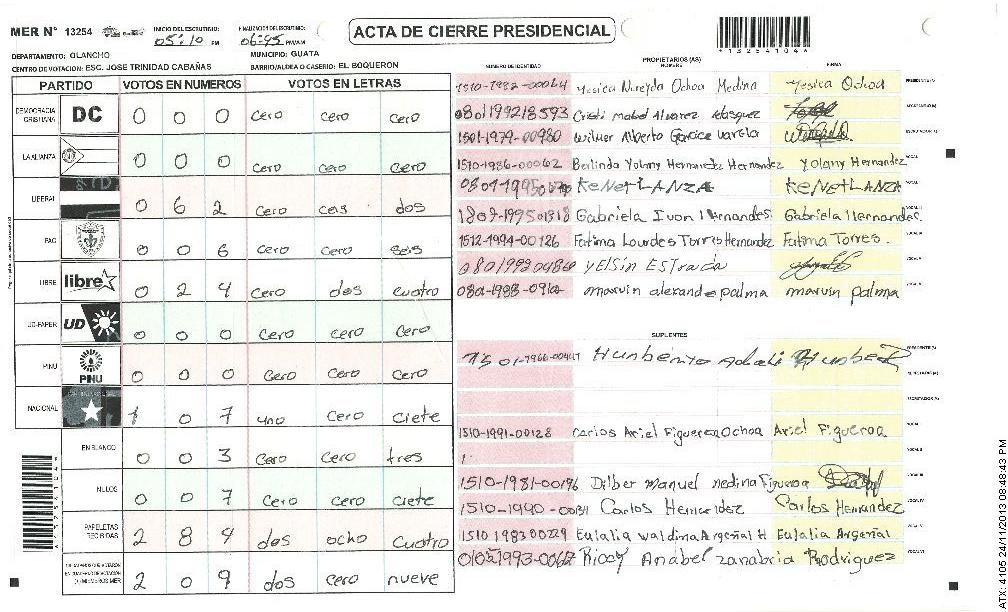 MER N° 13254
INICIO DEL ESCRUTINIO: 05:10 PM
FINALIZACIÓN DEL ESCRUTINIO: 06:45 PM/AM
ACTA DE CIERRE PRESIDENCIAL
*13254104A*
DEPARTAMENTO: OLANCHO
MUNICIPIO: GUATA
CENTRO DE VOTACION: ESC. JOSE TRINIDAD CABAÑAS
BARRIO/ALDEA O CASERIO: EL BOQUERON
PARTIDO VOTOS EN NUMEROS VOTOS EN LETRAS
DEMOCRACIA CRISTIANA DC 0 0 0 cero cero cero
LA ALIANZA 0 0 0 cero cero cero
LIBERAL 0 6 2 cero ceis dos
PAC 0 0 6 cero cero seis
LIBRE libre 0 2 4 cero dos cuatro
UD-FAPER UD 0 0 0 cero cero cero
PINU PINU 0 0 0 cero cero cero
NACIONAL 1 0 7 uno cero ciete
EN BLANCO 0 0 3 cero cero tres
NULOS 0 0 7 cero cero ciete
PAPELETAS RECIBIDAS 2 8 4 dos ocho cuatro
2 0 9 dos cero nueve
PROPIETARIOS (AS)
NÚMERO DE IDENTIDAD NOMBRES FIRMA
1510-1982-00064 Yesica Nureyda Ochoa Medina Yesica Ochoa
0801199218593 Cristi mabel Alvarez Velasquez
1501-1979-00980 Wilmer Alberto Garcia varela
1510-1986-00062 Berlinda Yolany Hernandez Hernandez Yolany Hernandez
KENET LANZA KENET LANZA
1807-199501318 Gabriela Ivon Hernandes Gabriela Hernandes.
1512-1994-00126 Fatima Lourdes Torres Hernandez Fatima Torres.
yElsin EStrada
marvin alexande palma marvin palma
SUPLENTES
Humberto
1510-1991-00128 carlos Ariel Figueroa Ochoa Ariel Figueroa
1510-1981-00196 Dilber Manuel medina Figueroa
Carlos Hernandez Carlos Hernandez
1510 1983 00229 Eulalia waldina Argeñal H Eulalia Argeñal
Riccy Anabel zanabria Rodriguez
ATX: 4105 24/11/2013 08:48:43 PM